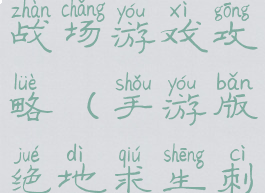 zhàn chǎng yóu xì gōng
战场游戏攻
lüè shǒu yóu bǎn
略（手游版
jué dì qiú shēng cì
绝地求生刺